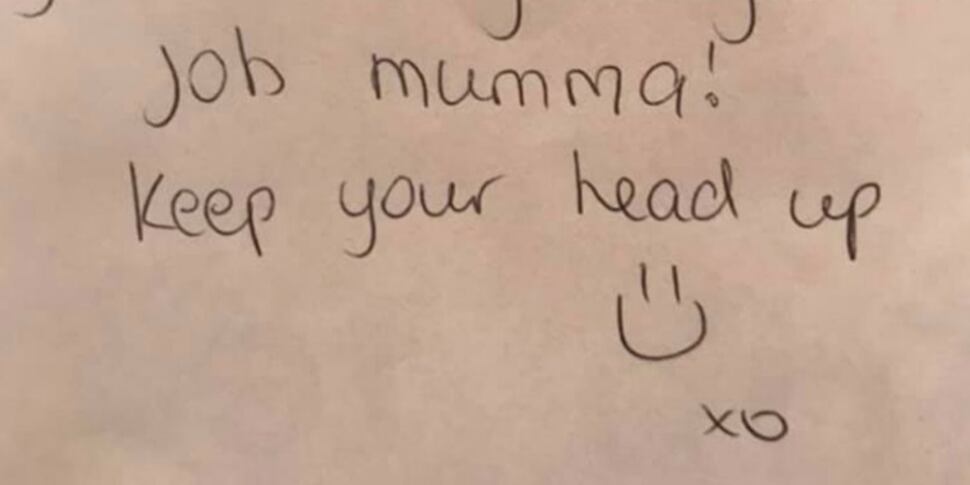 Job mumma!
Keep your head up
xo